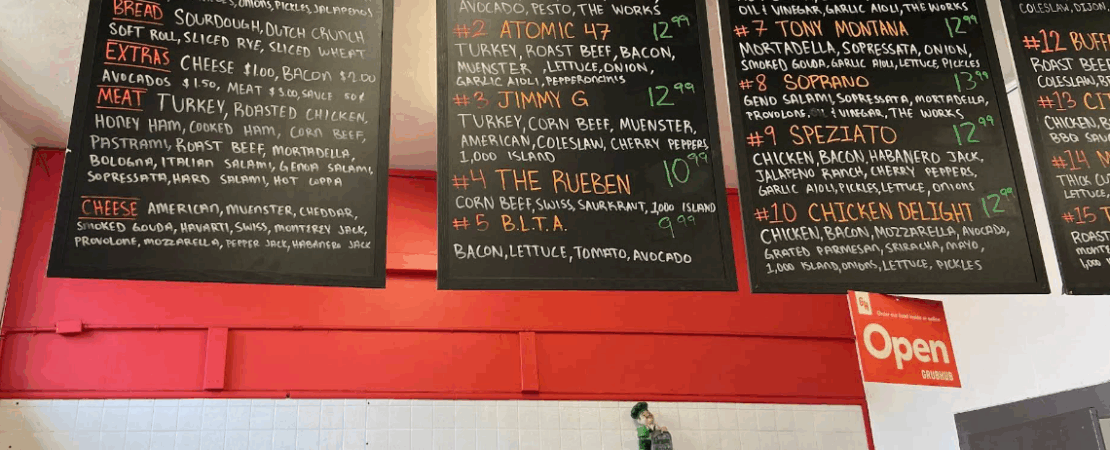 ONIONS, PICKLES, JALAPENOS
BREAD SOURDOUGH, DUTCH CRUNCH
SOFT ROLL, SLICED RYE, SLICED WHEAT
EXTRAS CHEESE $1.00, BACON $2.00
AVOCADOS $1.50, MEAT $3.00, SAUCE 50¢
MEAT TURKEY, ROASTED CHICKEN,
HONEY HAM, COOKED HAM, CORN BEEF,
PASTRAMI, ROAST BEEF, MORTADELLA,
BOLOGNA, ITALIAN SALAMI, GENOA SALAMI,
SOPRESSATA, HARD SALAMI, HOT COPPA
CHEESE AMERICAN, MUENSTER, CHEDDAR,
SMOKED GOUDA, HAVARTI, SWISS, MONTEREY JACK,
PROVOLONE, MOZZARELLA, PEPPER JACK, HABANERO JACK
AVOCADO, PESTO, THE WORKS
#2 ATOMIC 47 12.99
TURKEY, ROAST BEEF, BACON,
MUENSTER, LETTUCE, ONION,
GARLIC AIOLI, PEPPERONCINIS
#3 JIMMY G 12.99
TURKEY, CORN BEEF, MUENSTER,
AMERICAN, COLESLAW, CHERRY PEPPERS,
1,000 ISLAND
#4 THE RUEBEN 10.99
CORN BEEF, SWISS, SAURKRAUT, 1,000 ISLAND
#5 B.L.T.A. 9.99
BACON, LETTUCE, TOMATO, AVOCADO
OIL & VINEGAR, GARLIC AIOLI, THE WORKS
#7 TONY MONTANA 12.99
MORTADELLA, SOPRESSATA, ONION,
SMOKED GOUDA, GARLIC AIOLI, LETTUCE, PICKLES
#8 SOPRANO 13.99
GENO SALAMI, SOPRESSATA, MORTADELLA,
PROVOLONE, OIL & VINEGAR, THE WORKS
#9 SPEZIATO 12.99
CHICKEN, BACON, HABANERO JACK,
JALAPENO RANCH, CHERRY PEPPERS,
GARLIC AIOLI, PICKLES, LETTUCE, ONIONS
#10 CHICKEN DELIGHT 12.99
CHICKEN, BACON, MOZZARELLA, AVOCADO,
GRATED PARMESAN, SRIRACHA, MAYO,
1,000 ISLAND, ONIONS, LETTUCE, PICKLES
COLESLAW, DIJON,
#12 BUFF
ROAST BEEF
COLESLAW, B
#13 CI
CHICKEN, B
BBQ SAU
#14
THICK CU
LETTUCE
#15 T
ROAST
MONT
1,000
Open
GRUBHUB